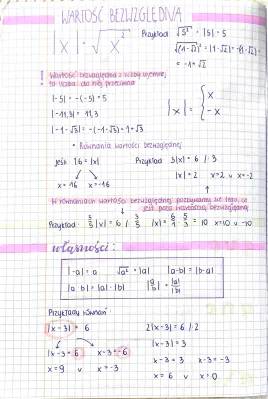 WARTOŚĆ BEZWZGLĘDNA
|x| = √x²
Przykład √5² = |5| = 5
√(1-√2)² = |1-√2| = -(1-√2)
= -1+√2
! Wartość bezwzględna z liczby ujemnej,
to liczba do niej przeciwna
|-5| = -(-5) = 5
|-11,3| = 11,3
|-1-√3| = -(-1-√3) = 1+√3
|x| = { x
-x
• Równania wartości bezwzględnej
jeśli 16 = |x|
x=16 x=-16
Przykład 3|x| = 6 /:3
|x| = 2 x=2 v x=-2
W równaniach wartości bezwzględnej pozbywamy się tego, co
jest poza wartością bezwzględną
Przykład 3/5 |x| = 6 /: 3/5 |x| = 6/1 · 5/3 = 10 x=10 v -10
własności:
|-a| = a √a² = |a| |a-b| = |b-a|
|a·b| = |a|·|b| |a/b| = |a|/|b|
Przykłady równań:
|x-3| = 6
x-3=6 x-3=-6
x=9 v x=-3
2|x-3| = 6 /:2
|x-3| = 3
x-3=3 x-3=-3
x=6 v x=0